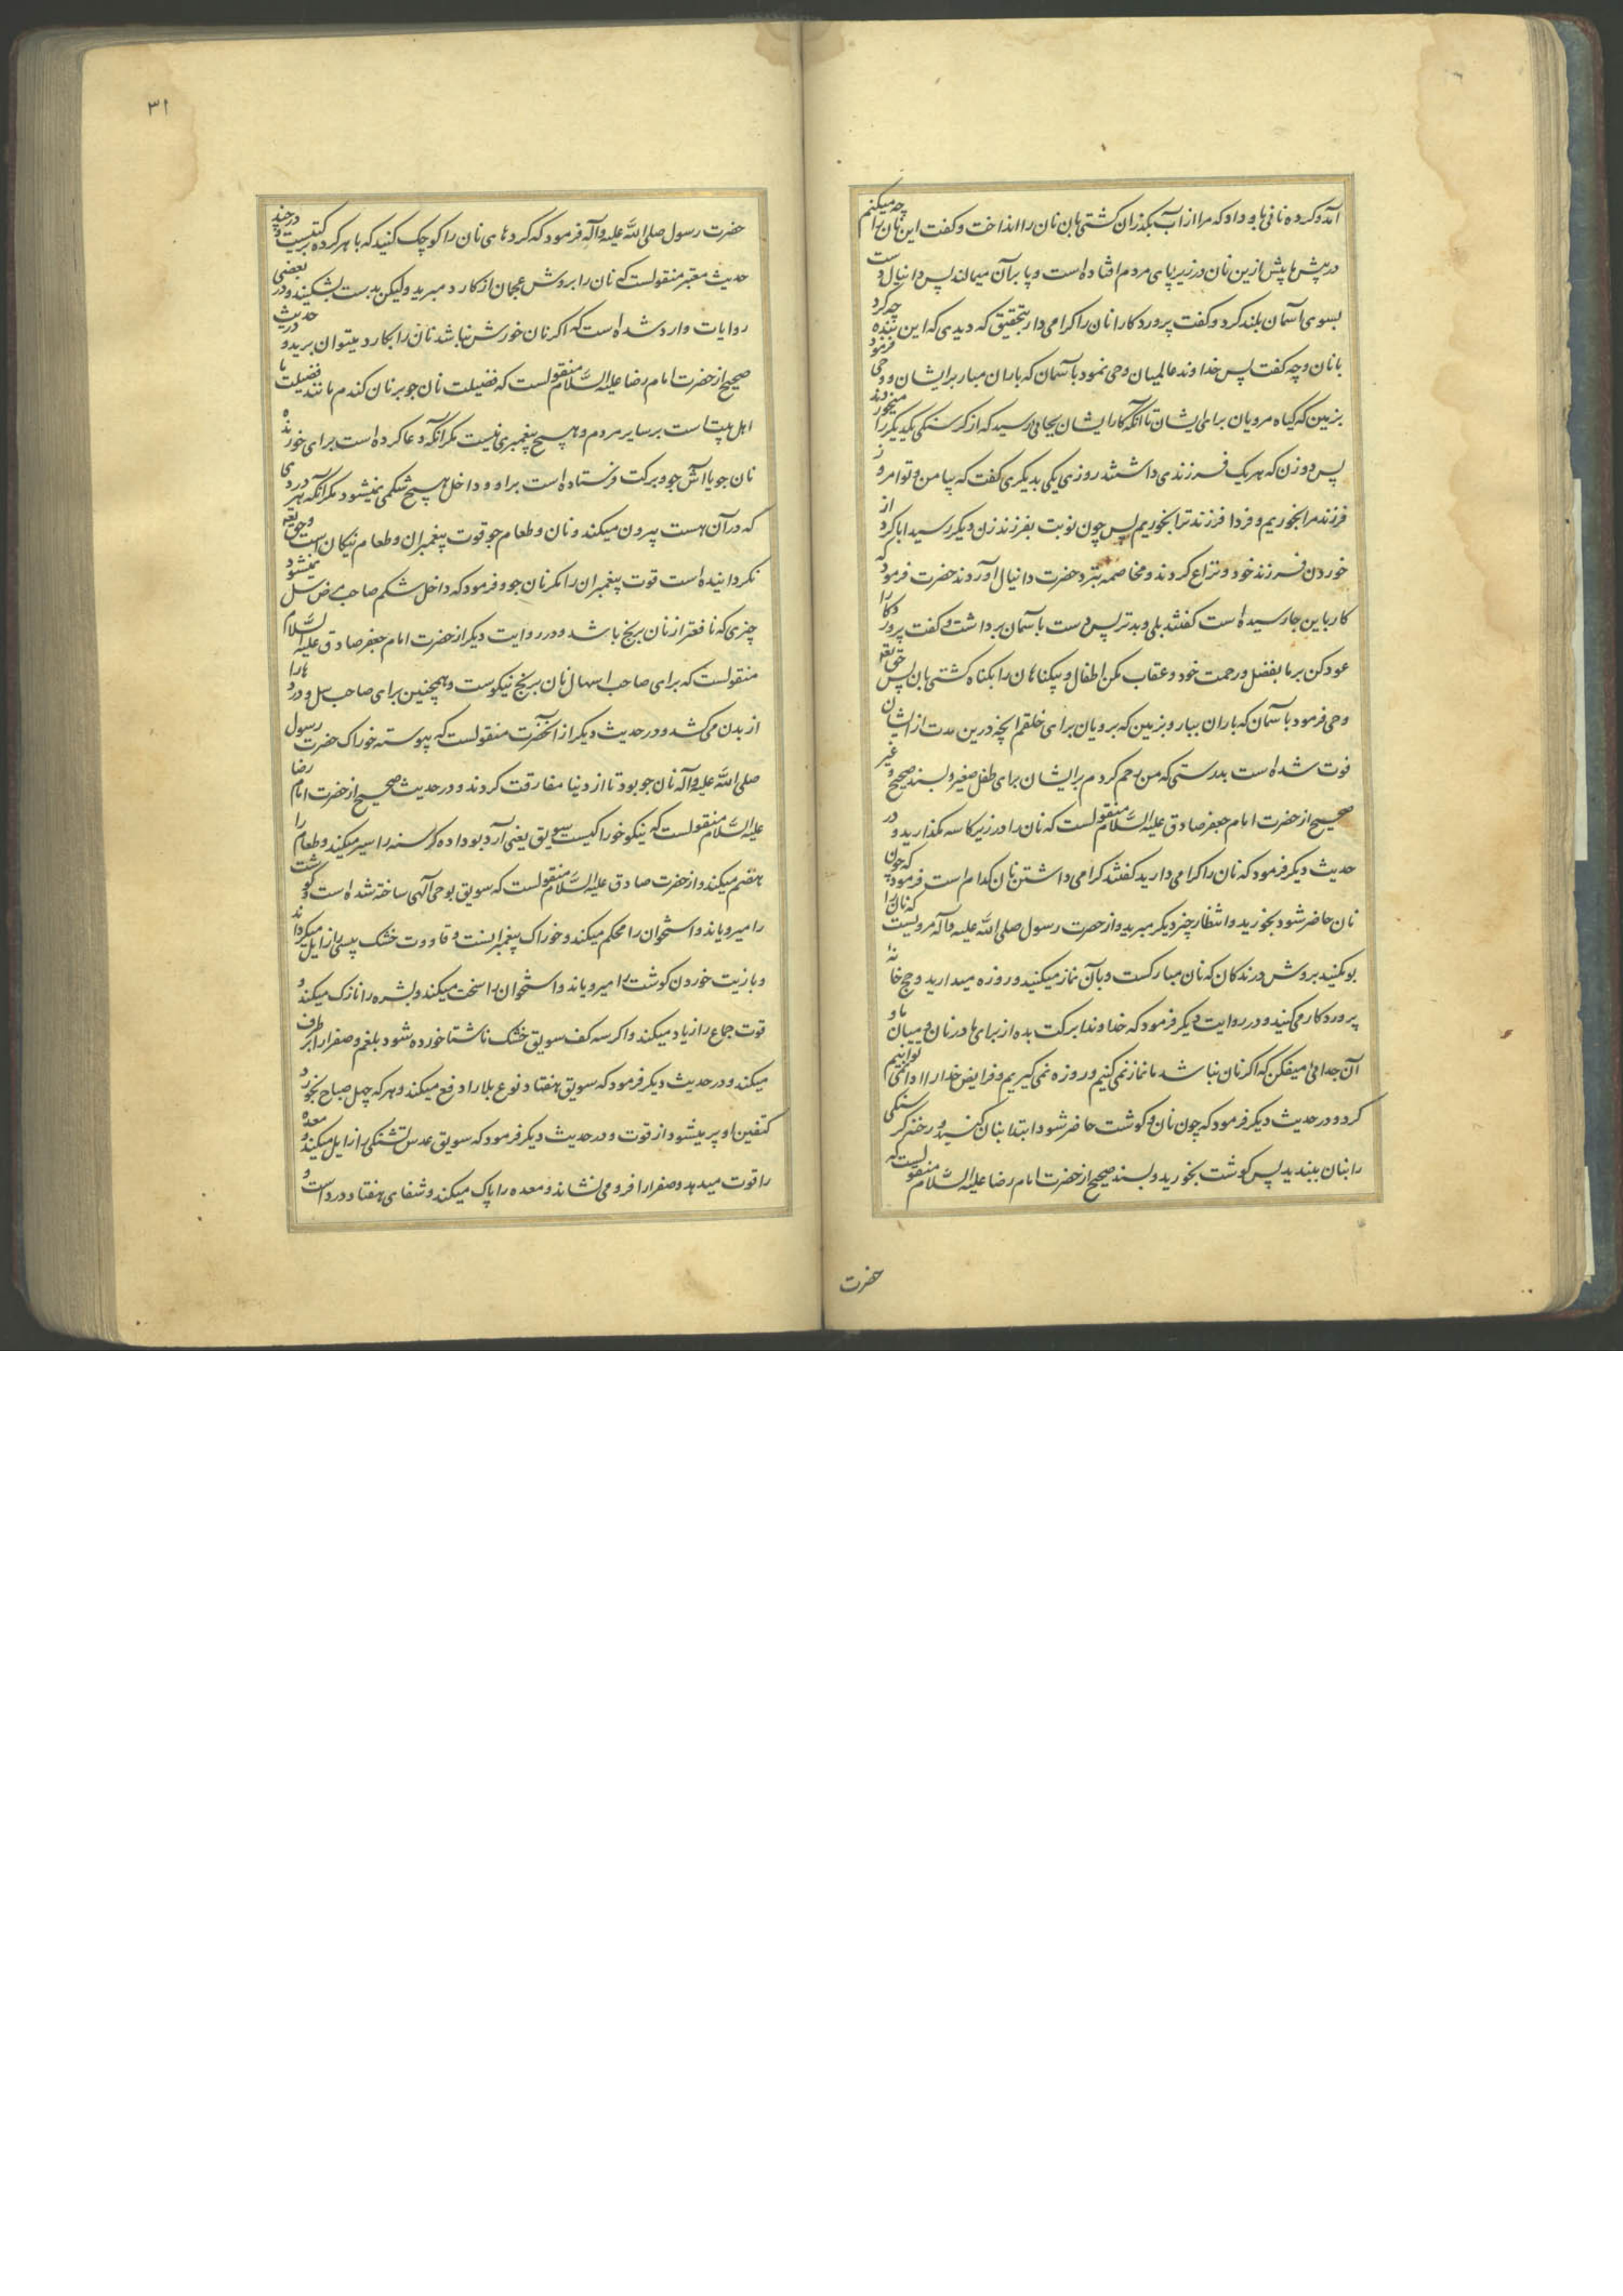 آمد و کرده نانی باو داد که مرا از آب بکذران کشتی بان نان را انداخت و کفت این نان را چه میکنم
در پیش ما پیش ازین نان در زیر پای مردم افتاده است و پا بر آن میمالند پس دانیال دست
بسوی آسمان بلند کرد و کفت پروردکارا نان را کرامی دار بتحقیق که دیدی که این بنده چه کرد
با نان و چه کفت پس خداوند عالمیان وحی نمود بآسمان که باران مبار بر ایشان و وحی فرمود
بزمین که کیاه مرویان برای ایشان تا آنکه کار ایشان بجائی رسید که از کرسنکی یکدیکر را میخوردند
پس دو زن که هر یک فرزندی داشتند روزی یکی بدیکری کفت که بیا من و تو امروز
فرزند مرا بخوریم و فردا فرزند ترا بخوریم پس چون نوبت بفرزند زن دیکر رسید ابا کرد از
خوردن فرزند خود و نزاع کردند و مخاصمه بنزد حضرت دانیال آوردند حضرت فرمود که
کار باین جا رسیده است کفتند بلی و بدتر پس دست بآسمان برداشت و کفت پروردکارا
عود کن بر ما بفضل و رحمت خود و عقاب مکن اطفال و بیکناهان را بکناه کشتی بان پس حق تعه
وحی فرمود بآسمان که باران ببار و بزمین که برویان برای خلقم آنچه درین مدت از ایشان
فوت شده است بدرستی که من رحم کردم بر ایشان برای طفل صغیر و بسند صحیح و غیر
صحیح از حضرت امام جعفر صادق علیه السّلام منقولست که نان را در زیر کاسه مکذارید و در
حدیث دیکر فرمود که نان را کرامی دارید کفتند کرامی داشتن نان کدام است فرمود که چون
نان حاضر شود بخورید و انتظار چیز دیکر مبرید و از حضرت رسول صلی الله علیه و آله مرویست که نان را
بو مکنید بروش درندکان که نان مبارکست و بآن نماز میکنید و روزه میدارید و حج خانه
پروردکار می کنید و در روایت دیکر فرمود که خداوندا برکت بده از برای ما در نان و میان ما و
آن جدائی میفکن که اکر نان نباشد ما نماز نمی کنیم و روزه نمی کیریم و فرایض خدا را ادا نمی توانیم
کرد و در حدیث دیکر فرمود که چون نان و کوشت حاضر شود ابتدا بنان کنید و رخنه کرسنکی
را بنان ببندید پس کوشت بخورید و بسند صحیح از حضرت امام رضا علیه السّلام منقولست که
حضرت
۳۱
حضرت رسول صلی الله علیه و آله فرمود که کرده های نان را کوچک کنید که با هر کرده برکتیست و در چند
حدیث معتبر منقولست که نان را بروش عجمان از کارد مبرید ولیکن بدست بشکنید و در بعضی
روایات وارد شده است که اکر نان خورش نباشد نان را بکارد میتوان برید و در حدیث
صحیح از حضرت امام رضا علیه السّلام منقولست که فضیلت نان جو بر نان کندم مانند فضیلت ما
اهل بیت است بر سایر مردم و هیچ پیغمبری نیست مکر آنکه دعا کرده است برای خورنده
نان جو یا آش جو و برکت فرستاده است بر او و داخل هیچ شکمی نمیشود مکر آنکه هر دردی
که در آن هست بیرون میکند و نان و طعام جو قوت پیغمبران و طعام نیکان است و حق تعه
نکردانیده است قوت پیغمبران را مکر نان جو و فرمود که داخل شکم صاحب مرض سل نمیشود
چیزی که نافعتر از نان برنج باشد و در روایت دیکر از حضرت امام جعفر صادق علیه السّلام
منقولست که برای صاحب اسهال نان برنج نیکوست و همچنین برای صاحب سل و دردها را
از بدن می کشد و در حدیث دیکر از آنحضرت منقولست که پیوسته خوراک حضرت رسول
صلی الله علیه و آله نان جو بود تا از دنیا مفارقت کردند و در حدیث صحیح از حضرت امام رضا
علیه السّلام منقولست که نیکو خوراکیست سویق یعنی آرد بو داده کرسنه را سیر میکند و طعام را
هضم میکند و از حضرت صادق علیه السّلام منقولست که سویق بوحی آلهی ساخته شده است و کوشت
را میرویاند و استخوان را محکم میکند و خوراک پیغمبرانست و قاووت خشک پیسی را زایل میکرداند
و با زیت خوردن کوشت را میرویاند و استخوان را سخت میکند و بشره را نازک میکند و
قوت جماع را زیاد میکند و اکر سه کف سویق خشک ناشتا خورده شود بلغم و صفرا را بر طرف
میکند و در حدیث دیکر فرمود که سویق هفتاد نوع بلا را دفع میکند و هر که چهل صباح بخورد
کتفین او پر میشود از قوت و در حدیث دیکر فرمود که سویق عدس تشنکی را زایل میکند و معده
را قوت میدهد و صفرا را فرو می نشاند و معده را پاک میکند و شفای هفتاد درد است و